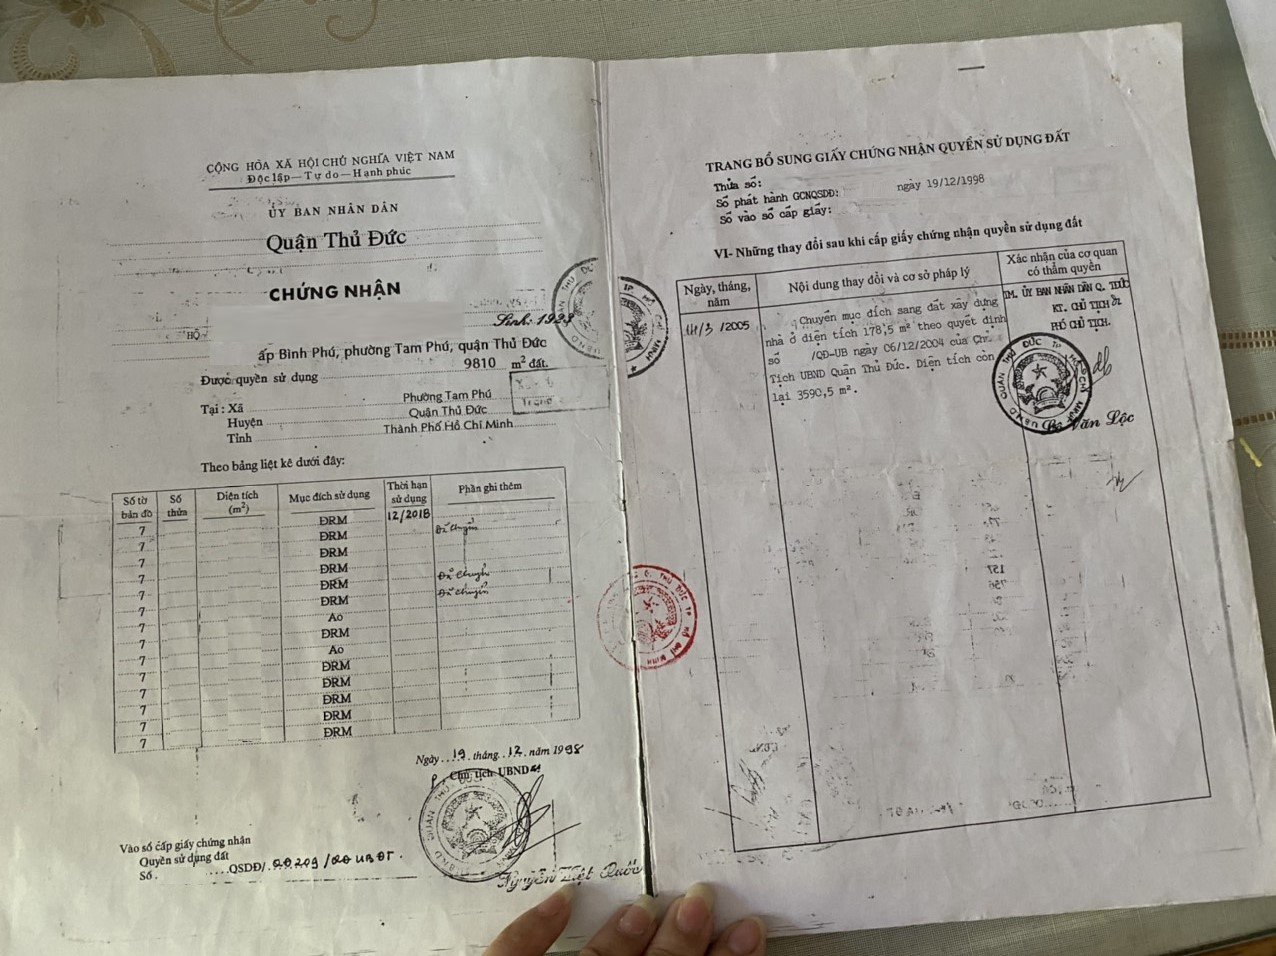 CỘNG HÒA XÃ HỘI CHỦ NGHĨA VIỆT NAM
Độc lập—Tự do—Hạnh phúc
ỦY BAN NHÂN DÂN
Quận Thủ Đức
CHỨNG NHẬN
HỘ Sinh: 1933
ấp Bình Phú, phường Tam Phú, quận Thủ Đức
Được quyền sử dụng 9810 m² đất.
Tại: Xã Phường Tam Phú
Huyện Quận Thủ Đức
Tỉnh Thành Phố Hồ Chí Minh
Theo bảng liệt kê dưới đây:
Số tờ bản đồ Số thửa Diện tích (m²) Mục đích sử dụng Thời hạn sử dụng Phần ghi thêm
7 ĐRM 12/2018
7 ĐRM Đã chuyển
7 ĐRM
7 ĐRM
7 ĐRM Đã chuyển
7 ĐRM Đã chuyển
7 Ao
7 ĐRM
7 Ao
7 ĐRM
7 ĐRM
7 ĐRM
7 ĐRM
7 ĐRM
Ngày 19 tháng 12 năm 1998
Chủ tịch UBND
UBND QUẬN THỦ ĐỨC
Nguyễn Việt Quốc
Vào sổ cấp giấy chứng nhận
Quyền sử dụng đất
Số QSDĐ/
TRANG BỔ SUNG GIẤY CHỨNG NHẬN QUYỀN SỬ DỤNG ĐẤT
Thửa số:
Số phát hành GCNQSDĐ: ngày 19/12/1998
Số vào sổ cấp giấy:
VI- Những thay đổi sau khi cấp giấy chứng nhận quyền sử dụng đất
Ngày, tháng, năm Nội dung thay đổi và cơ sở pháp lý Xác nhận của cơ quan có thẩm quyền
/3 /2005 Chuyển mục đích sang đất xây dựng
nhà ở diện tích 178,5 m² theo quyết định
số /QĐ-UB ngày 06/12/2004 của Chủ
Tịch UBND Quận Thủ Đức. Diện tích còn
lại 3590,5 m².
TM. ỦY BAN NHÂN DÂN Q. TĐỨC
KT. CHỦ TỊCH
PHÓ CHỦ TỊCH.
UBND QUẬN THỦ ĐỨC TP HỒ CHÍ MINH
Lê Văn Lộc